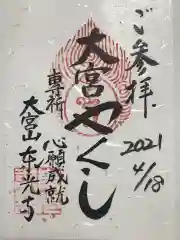 ご参拝
2021
4/18
大宮やくし
専祈
心願成就
大宮山本光寺